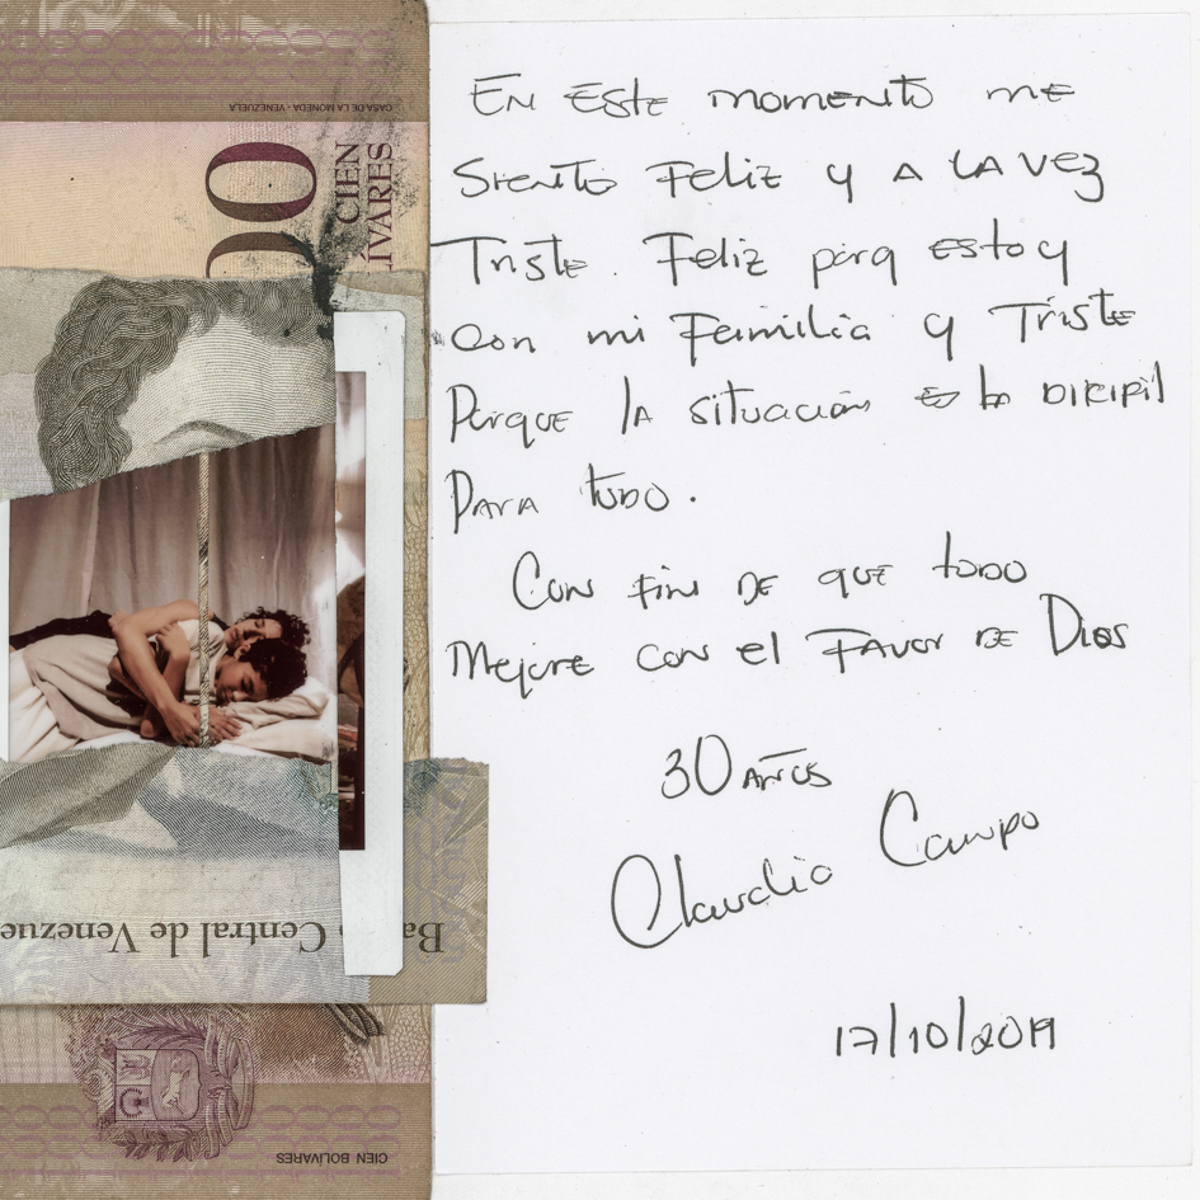 CASA DE LA MONEDA - VENEZUELA
00
CIEN
LÍVARES
Central de Venezue
Ba
CIEN BOLÍVARES
En Este momento me
Siento Feliz y A LA Vez
Triste. Feliz porq estoy
con mi Familia y Triste
Porque la situación es lo DiFicil
Para todo.
Con Fin De que todo
Mejore con el Favor De Dios
30 Años
Claudio Campo
17/10/2019